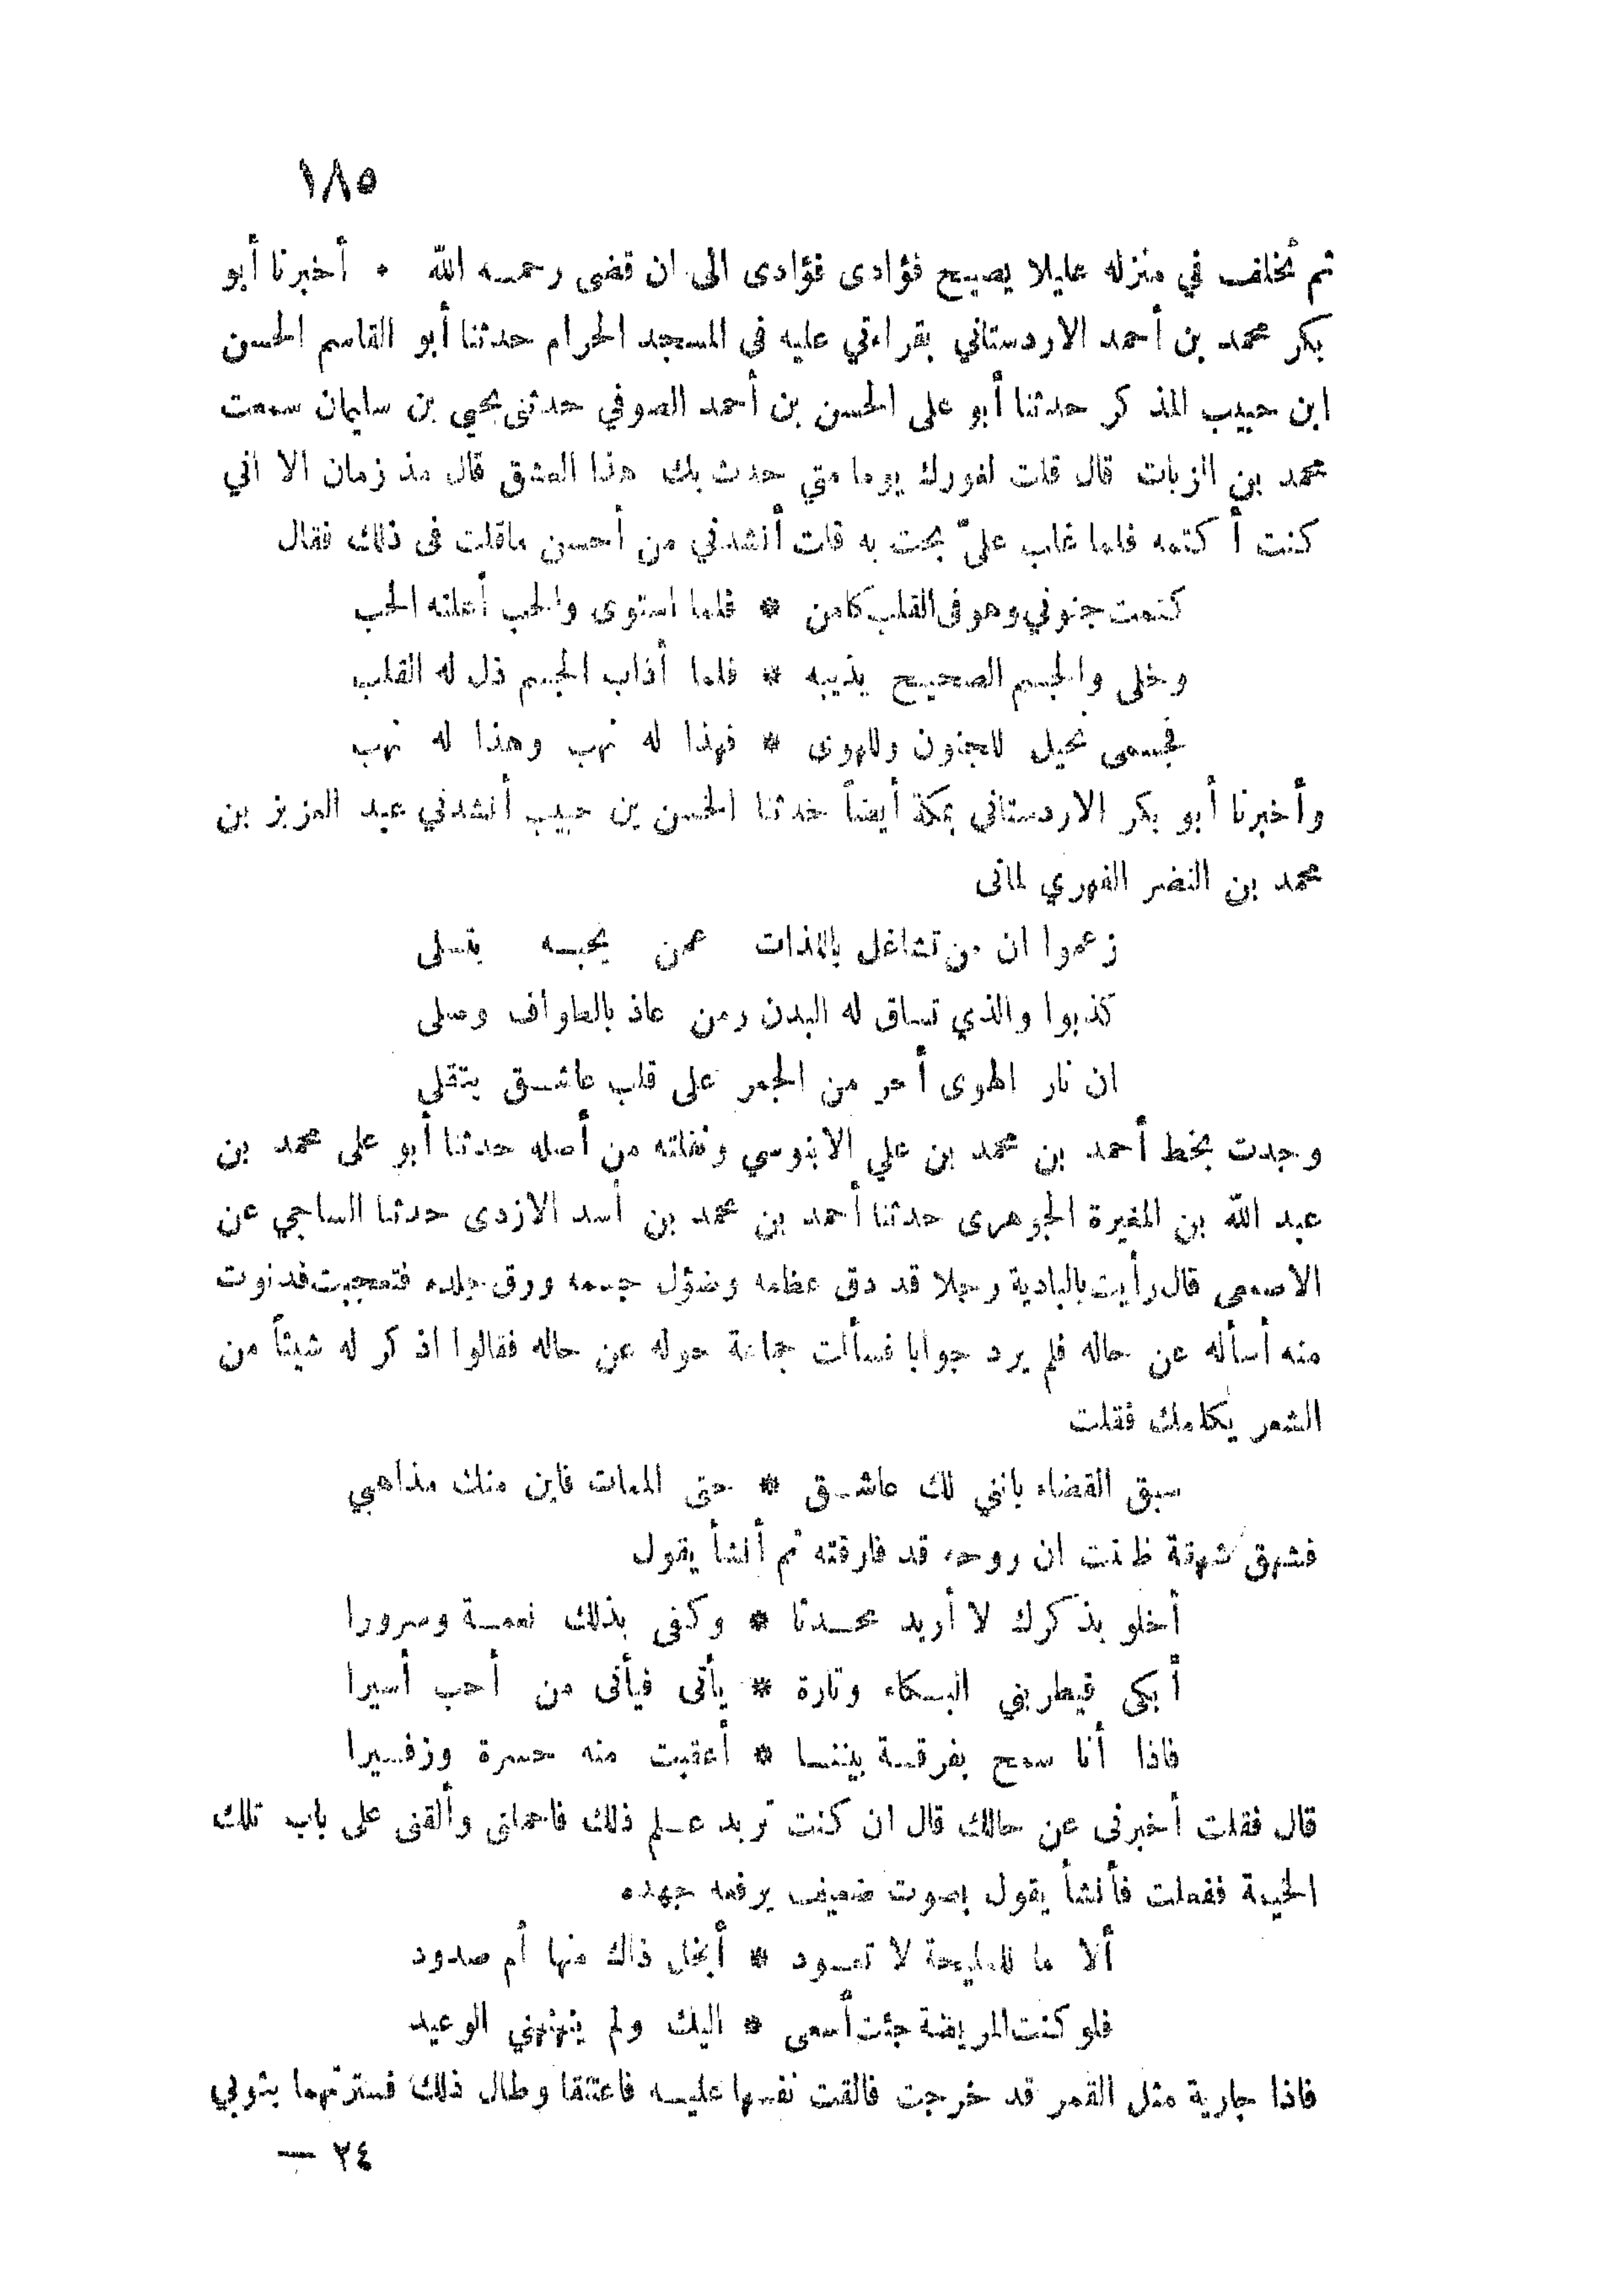 ١٨٥
ثم تخلف في منزله عليلا يصيح فؤادى فؤادى الى ان قضى رحمه الله • أخبرنا أبو
بكر محمد بن أحمد الاردستاني بقراءتي عليه في المسجد الحرام حدثنا أبو القاسم الحسن
ابن حبيب المذكر حدثنا أبو على الحسن بن أحمد الصوفي حدثنى يحيي بن سليمان سمعت
محمد بن الزيات قال قلت لغورك يوما متي حدث بك هذا العشق قال مذ زمان الا اني
كنت أكتمه فلما غلب علىّ بحت به قلت أنشدني من أحسن ماقلت فى ذلك فقال
كتمت جنوني وهو فى القلب كامن * فلما استوى والحب أعلنه الحب
وخلى والجسم الصحيح يذيبه * فلما أذاب الجسم ذل له القلب
فجسمى نحيل للجنون وللهوى * فهذا له نهب وهذا له نهب
وأخبرنا أبو بكر الاردستانى بمكة أيضاً حدثنا الحسن بن حبيب أنشدني عبد العزيز بن
محمد بن النضر الفهري لمانى
زعموا ان من تشاغل باللذات عمن يحبه يتسلى
كذبوا والذي تساق له البدن ومن عاذ بالطواف وصلى
ان نار الهوى أحر من الجمر على قلب عاشق يتقلى
وجدت بخط أحمد بن محمد بن علي الابنوسي ونقلته من أصله حدثنا أبو على محمد بن
عبد الله بن المغيرة الجوهرى حدثنا أحمد بن محمد بن أسد الازدى حدثنا الساجي عن
الاصمعى قال رأيت بالبادية رجلا قد دق عظمه وضؤل جسمه ورق جلده فتعجبت فدنوت
منه أسأله عن حاله فلم يرد جوابا فسألت جماعة حوله عن حاله فقالوا اذكر له شيئاً من
الشعر يكلمك فقلت
سبق القضاء بانني لك عاشق * حتى الممات فاين منك مذاهبي
فشهق شهقة ظننت ان روحه قد فارقته ثم أنشأ يقول
أخلو بذكرك لا أريد محدثا * وكفى بذلك نعمة وسرورا
أبكى فيطربني البكاء وتارة * يأتى فيأتى من أحب أسيرا
فاذا أنا سمح بفرقة بيننا * أعقبت منه حسرة وزفيرا
قال فقلت أخبرنى عن حالك قال ان كنت تريد علم ذلك فاحملنى وألقنى على باب تلك
الخيمة ففعلت فأنشأ يقول بصوت ضعيف يرفعه جهده
ألا ما للمليحة لا تعود * أبخل ذاك منها أم صدود
فلو كنت المريضة جئت أسعى * اليك ولم ينهنهني الوعيد
فاذا جارية مثل القمر قد خرجت فالقت نفسها عليه فاعتنقا وطال ذلك فسترتهما بثوبي
٢٤ —